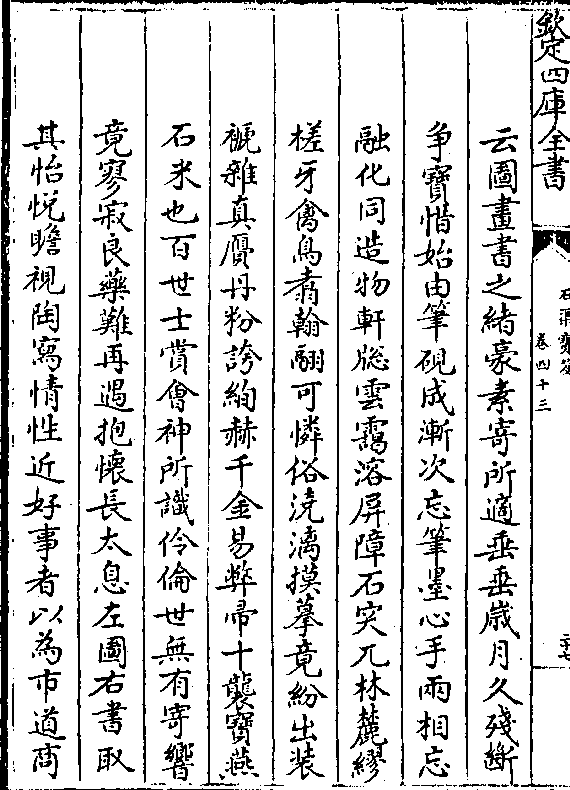 欽定四庫全書
卷四十三
云圖畫書之緒豪素寄所適垂垂歲月久殘斷
爭寶惜始由筆硯成漸次忘筆墨心手兩相忘
融化同造物軒窓雲靄溶屏障石突兀林麓繆
槎牙禽鳥翥翰翮可憐俗澆漓摸摹竟紛出装
褫雜真贗丹粉誇絢赫千金易弊帚十襲寶燕
石米也百世士賞會神所識伶倫世無有寄響
竟寥寂良藥難再遇抱懷長太息左圖右書取
其怡悅瞻視陶寫情性近好事者以為市道商